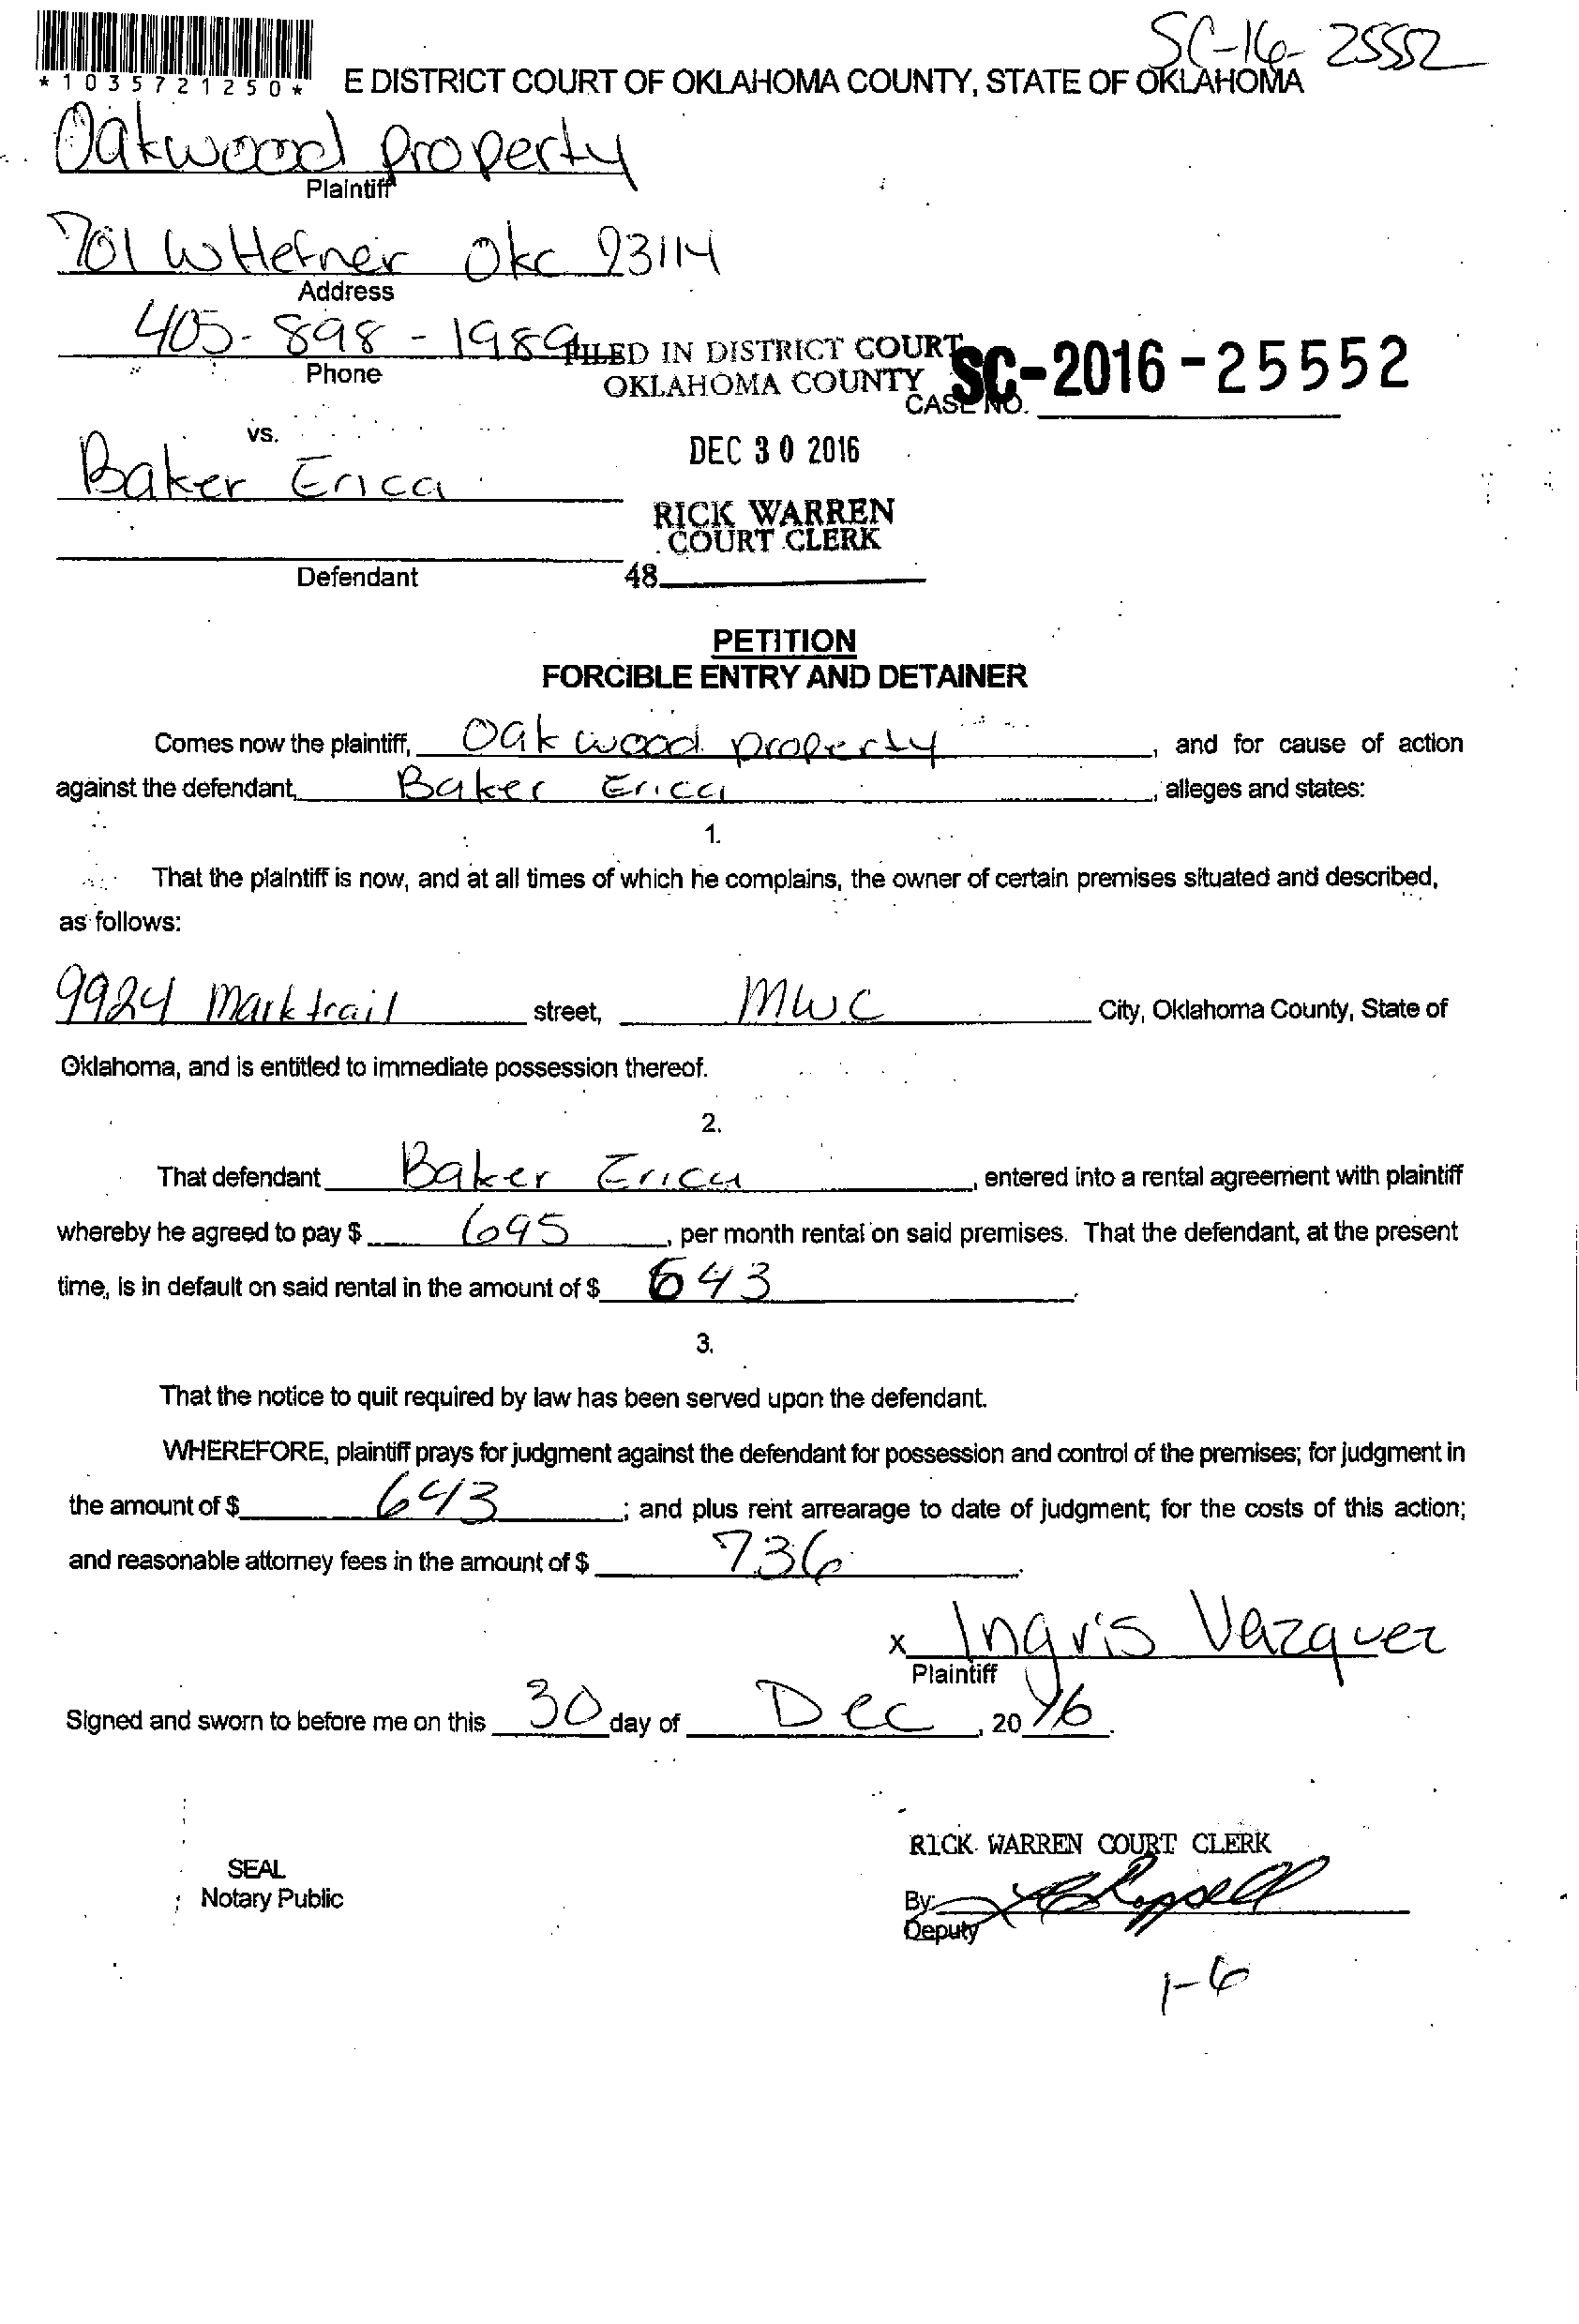 SC-16-25552
*1035721250*
E DISTRICT COURT OF OKLAHOMA COUNTY, STATE OF OKLAHOMA
Oakwood property
Plaintiff
701 W Hefner Okc 73114
Address
405-898-1989
FILED IN DISTRICT COURT
Phone
OKLAHOMA COUNTY
SC-2016-25552
CASE NO.
vs.
DEC 30 2016
Baker Erica
RICK WARREN
COURT CLERK
Defendant
48
PETITION
FORCIBLE ENTRY AND DETAINER
Comes now the plaintiff, Oakwood property, and for cause of action
against the defendant, Baker Erica, alleges and states:
1.
That the plaintiff is now, and at all times of which he complains, the owner of certain premises situated and described,
as follows:
9924 Mark trail street, MWC City, Oklahoma County, State of
Oklahoma, and is entitled to immediate possession thereof.
2.
That defendant Baker Erica, entered into a rental agreement with plaintiff
whereby he agreed to pay $ 695, per month rental on said premises. That the defendant, at the present
time, is in default on said rental in the amount of $ 643.
3.
That the notice to quit required by law has been served upon the defendant.
WHEREFORE, plaintiff prays for judgment against the defendant for possession and control of the premises; for judgment in
the amount of $ 643; and plus rent arrearage to date of judgment; for the costs of this action;
and reasonable attorney fees in the amount of $ 736.
x Ingris Vazquez
Plaintiff
Signed and sworn to before me on this 30 day of Dec, 20 16.
RICK WARREN COURT CLERK
SEAL
Notary Public
By:
Deputy
1-6